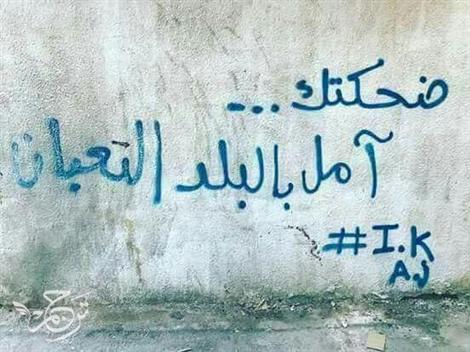 ضحكتك...
آمل بالبلد التعبان
#I.K
A.J